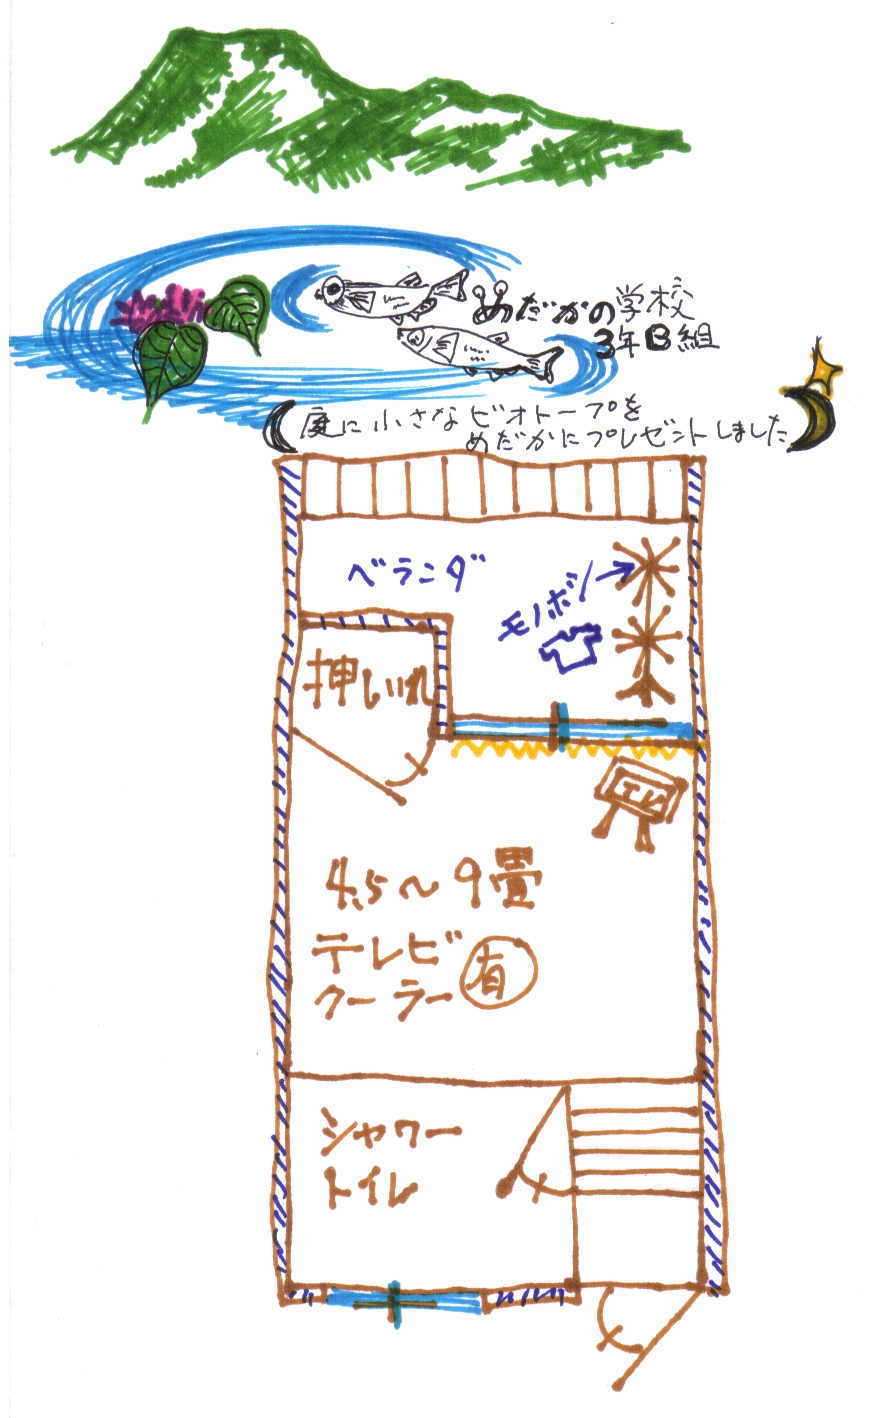 めだかの学校
3年B組
庭に小さなビオトープを
めだかにプレゼントしました
ベランダ
モノホシ
押しいれ
TV
4.5〜9畳
テレビ
クーラー 有
シャワー
トイレ